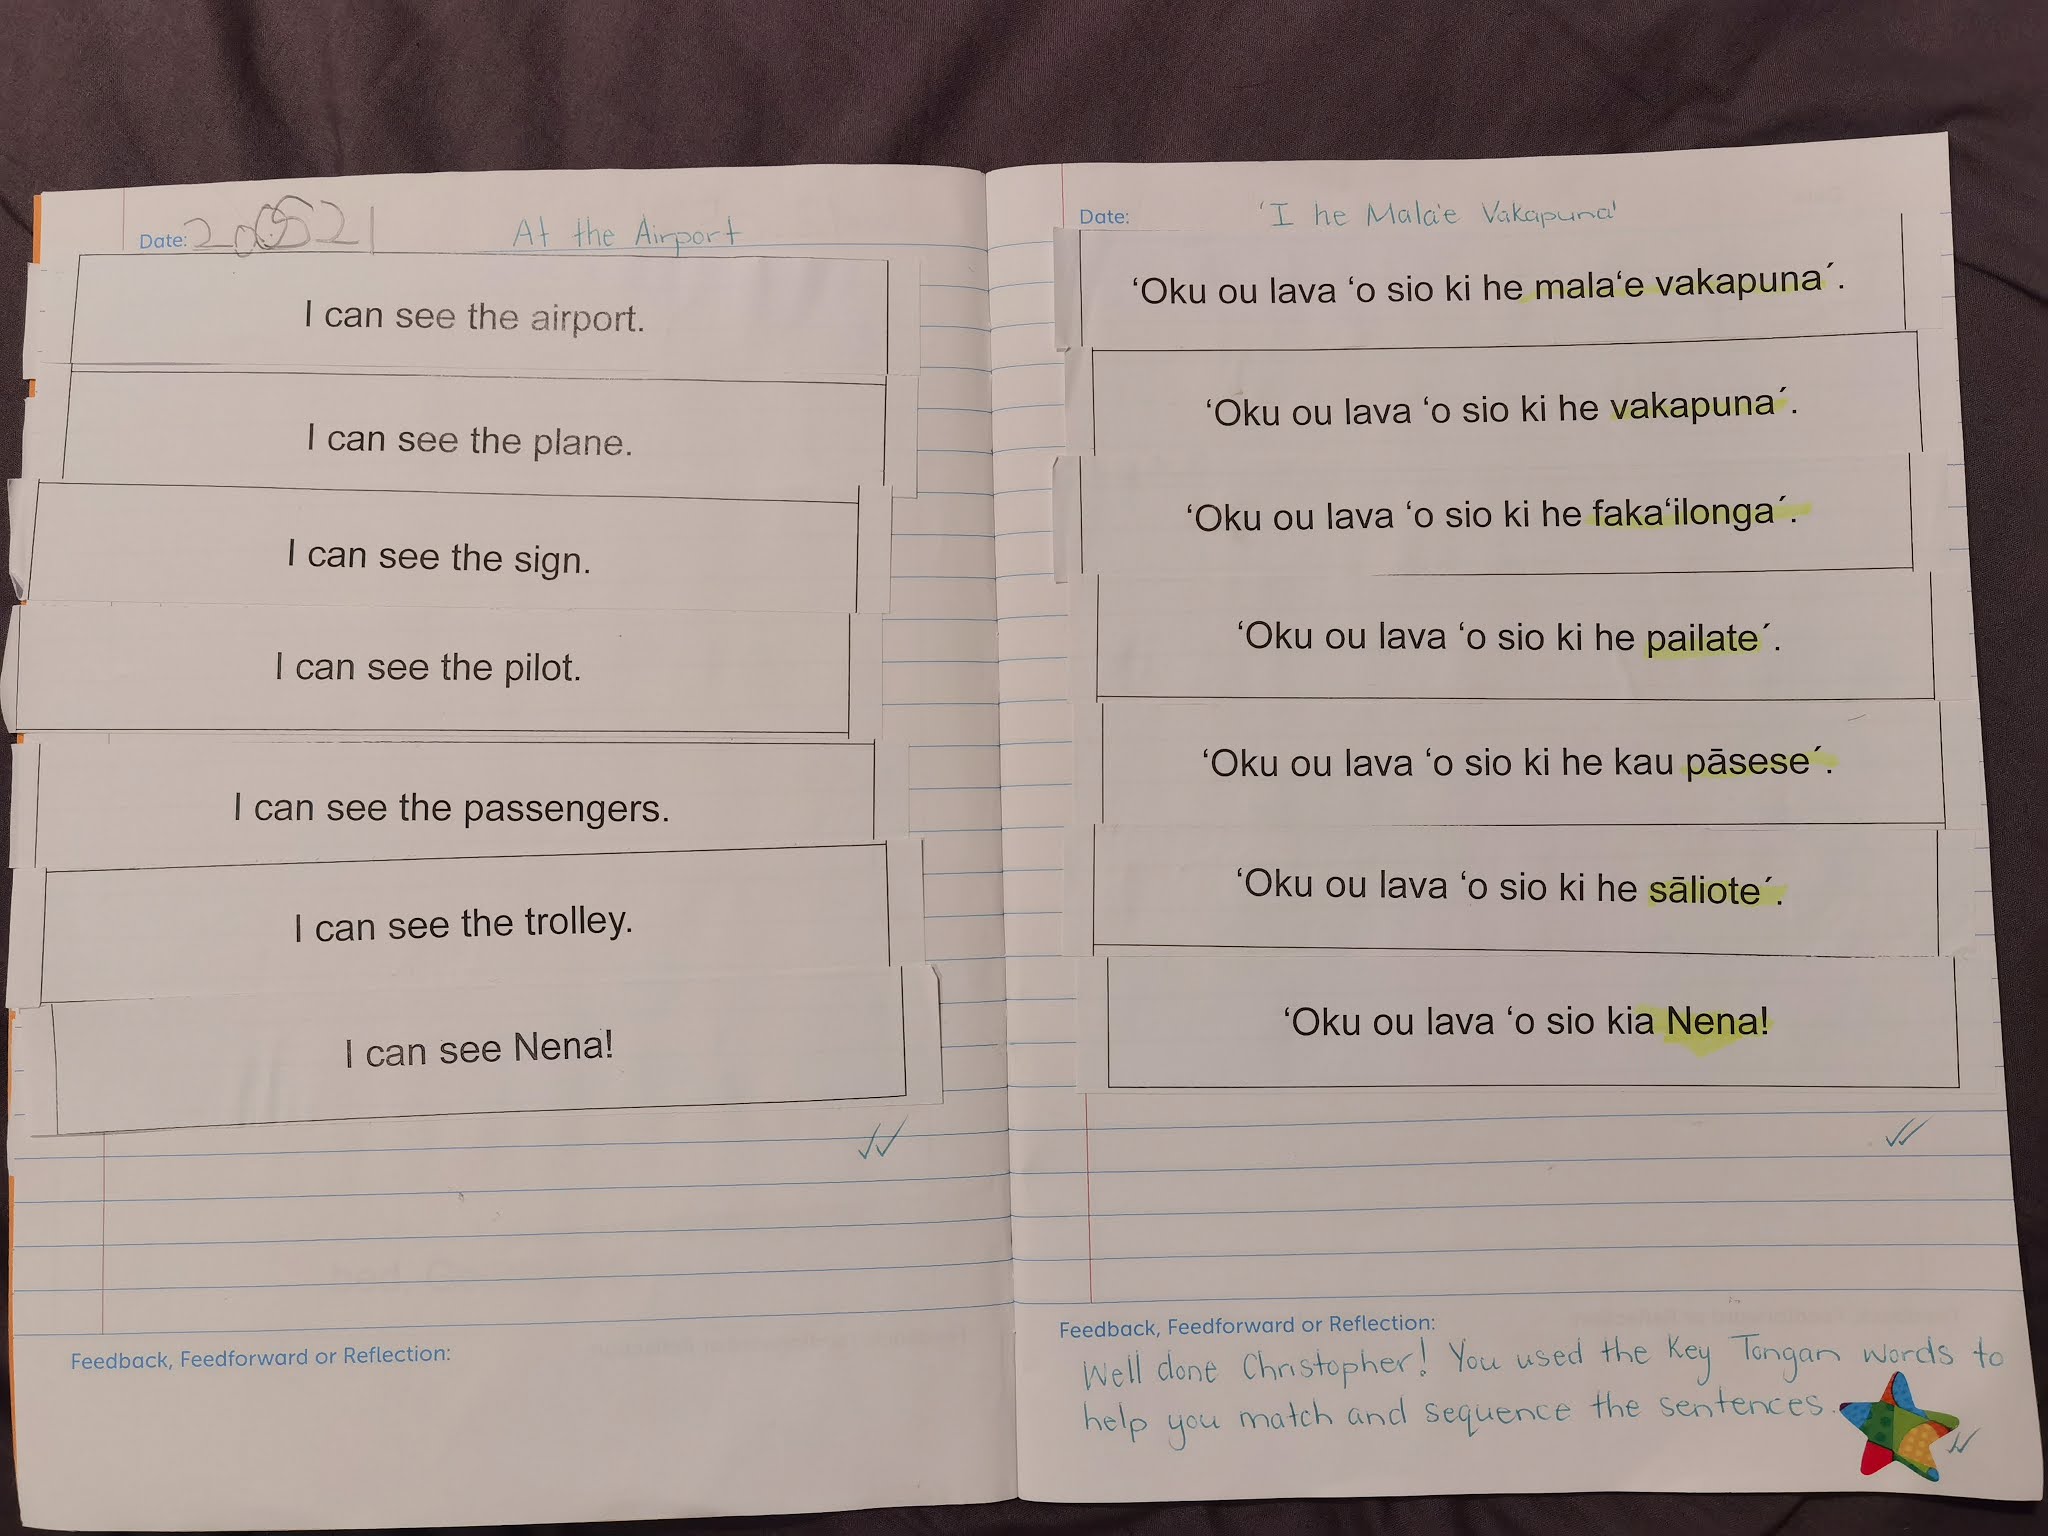 Date: 200521
At the Airport
I can see the airport.
I can see the plane.
I can see the sign.
I can see the pilot.
I can see the passengers.
I can see the trolley.
I can see Nena!
Feedback, Feedforward or Reflection:
Date:
'I he Mala'e Vakapuna'
‘Oku ou lava ‘o sio ki he mala‘e vakapuna´.
‘Oku ou lava ‘o sio ki he vakapuna´.
‘Oku ou lava ‘o sio ki he faka‘ilonga´.
‘Oku ou lava ‘o sio ki he pailate´.
‘Oku ou lava ‘o sio ki he kau pāsese´.
‘Oku ou lava ‘o sio ki he sāliote´.
‘Oku ou lava ‘o sio kia Nena!
Feedback, Feedforward or Reflection:
Well done Christopher! You used the key Tongan words to
help you match and sequence the sentences.